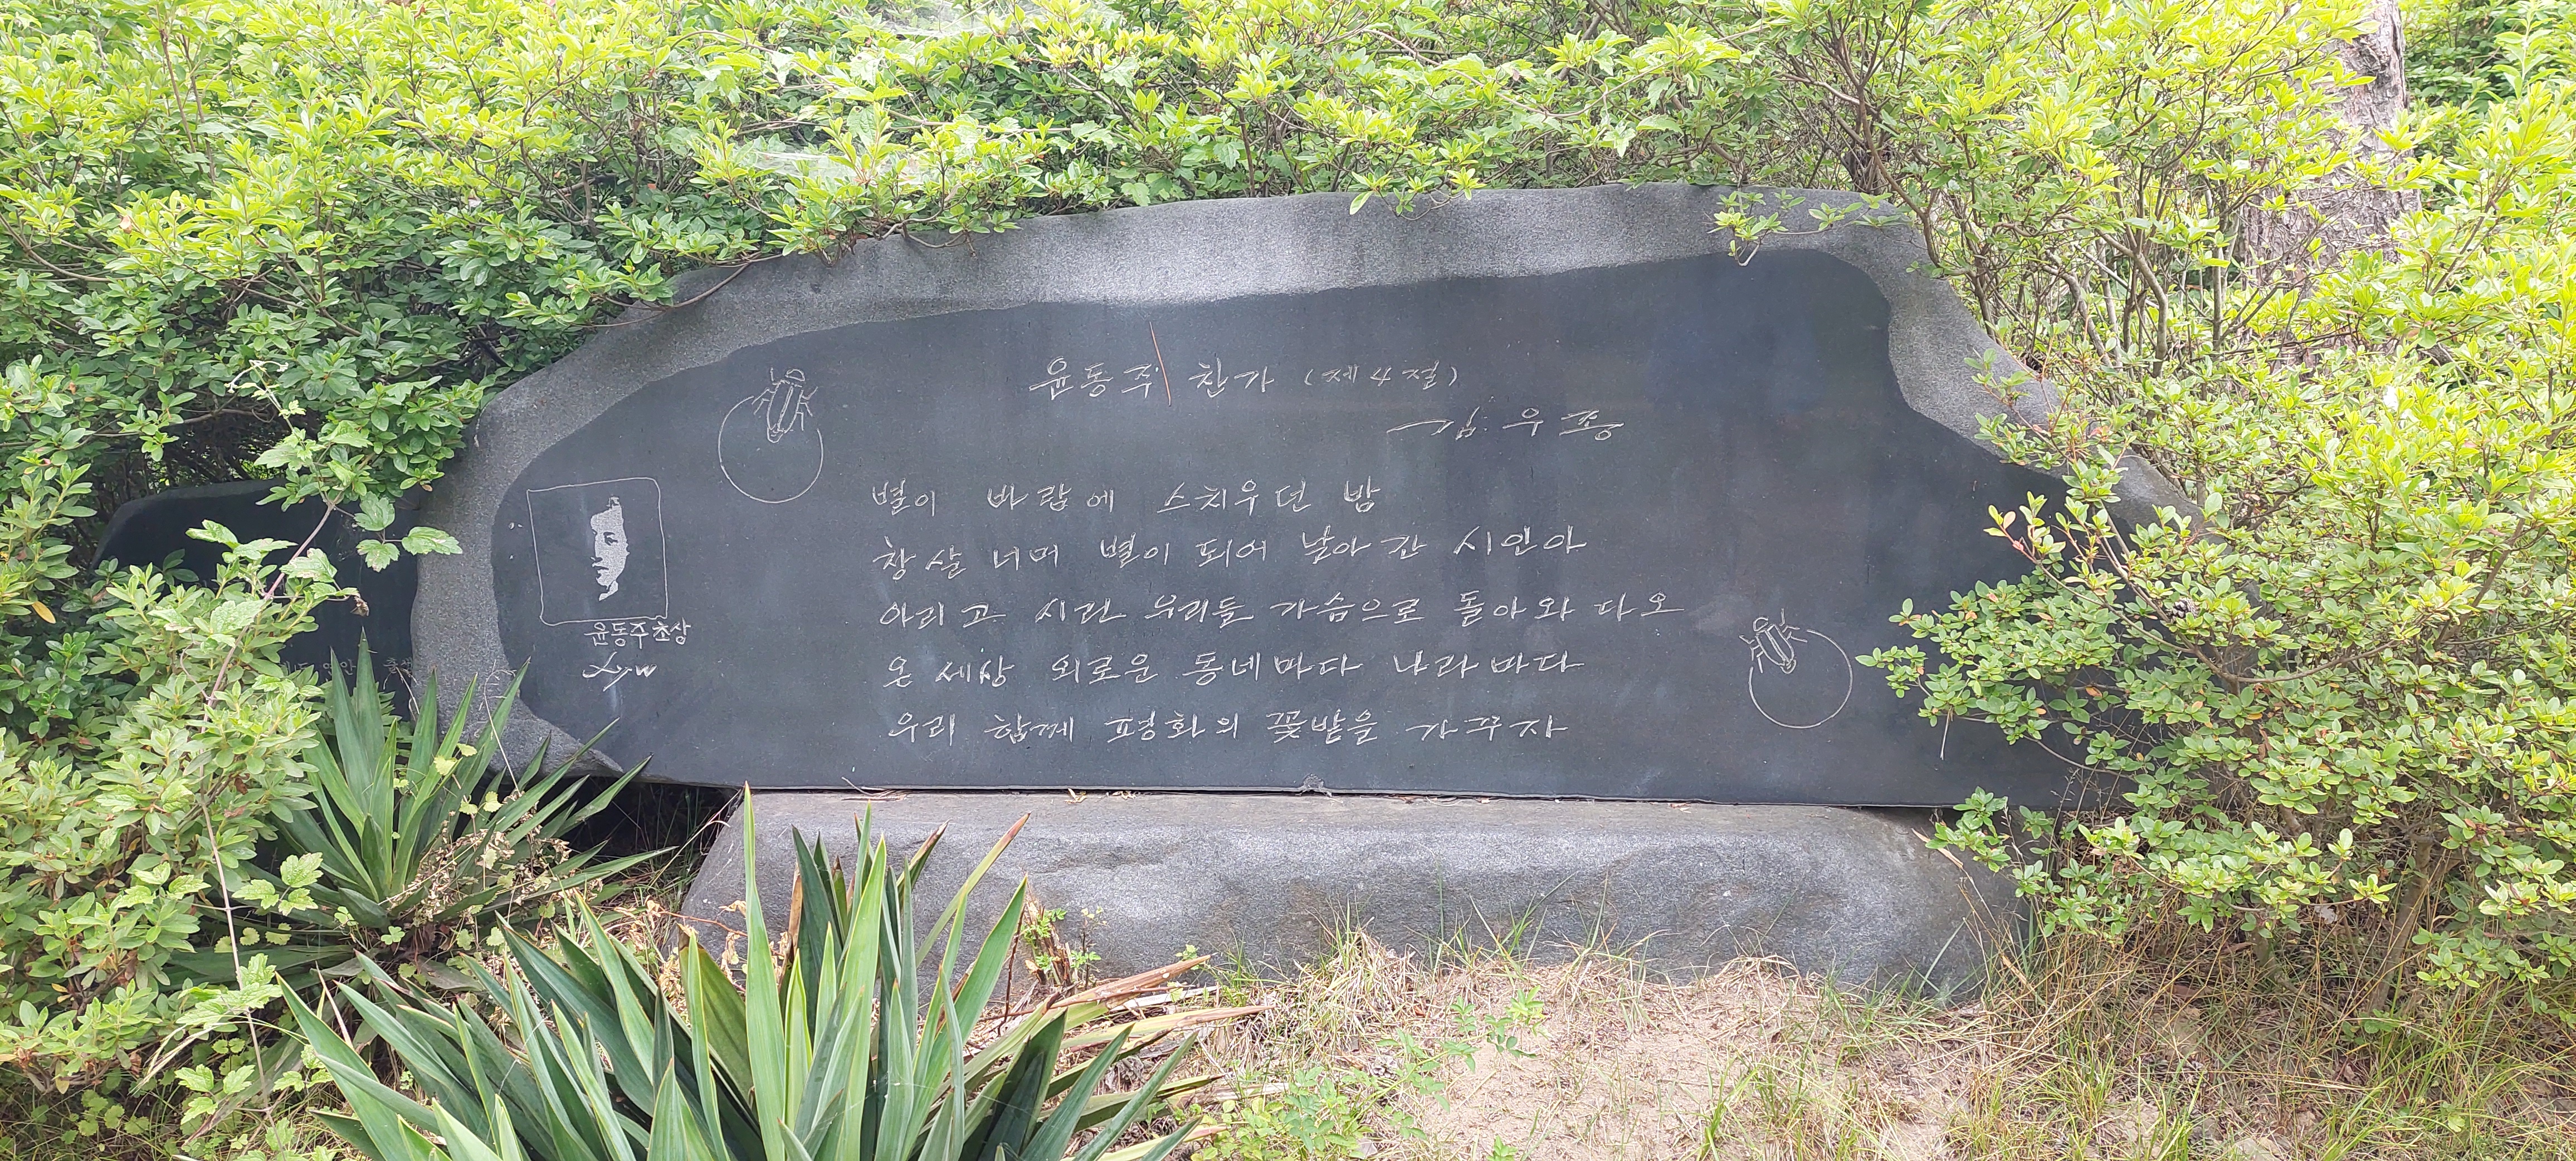 윤동주 찬가 (제4절)
김우종
별이 바람에 스치우던 밤
창살 너머 별이 되어 날아간 시인아
아리고 시린 우리들 가슴으로 돌아와 다오
온 세상 외로운 동네마다 나라마다
우리 함께 평화의 꽃밭을 가꾸자
윤동주 초상